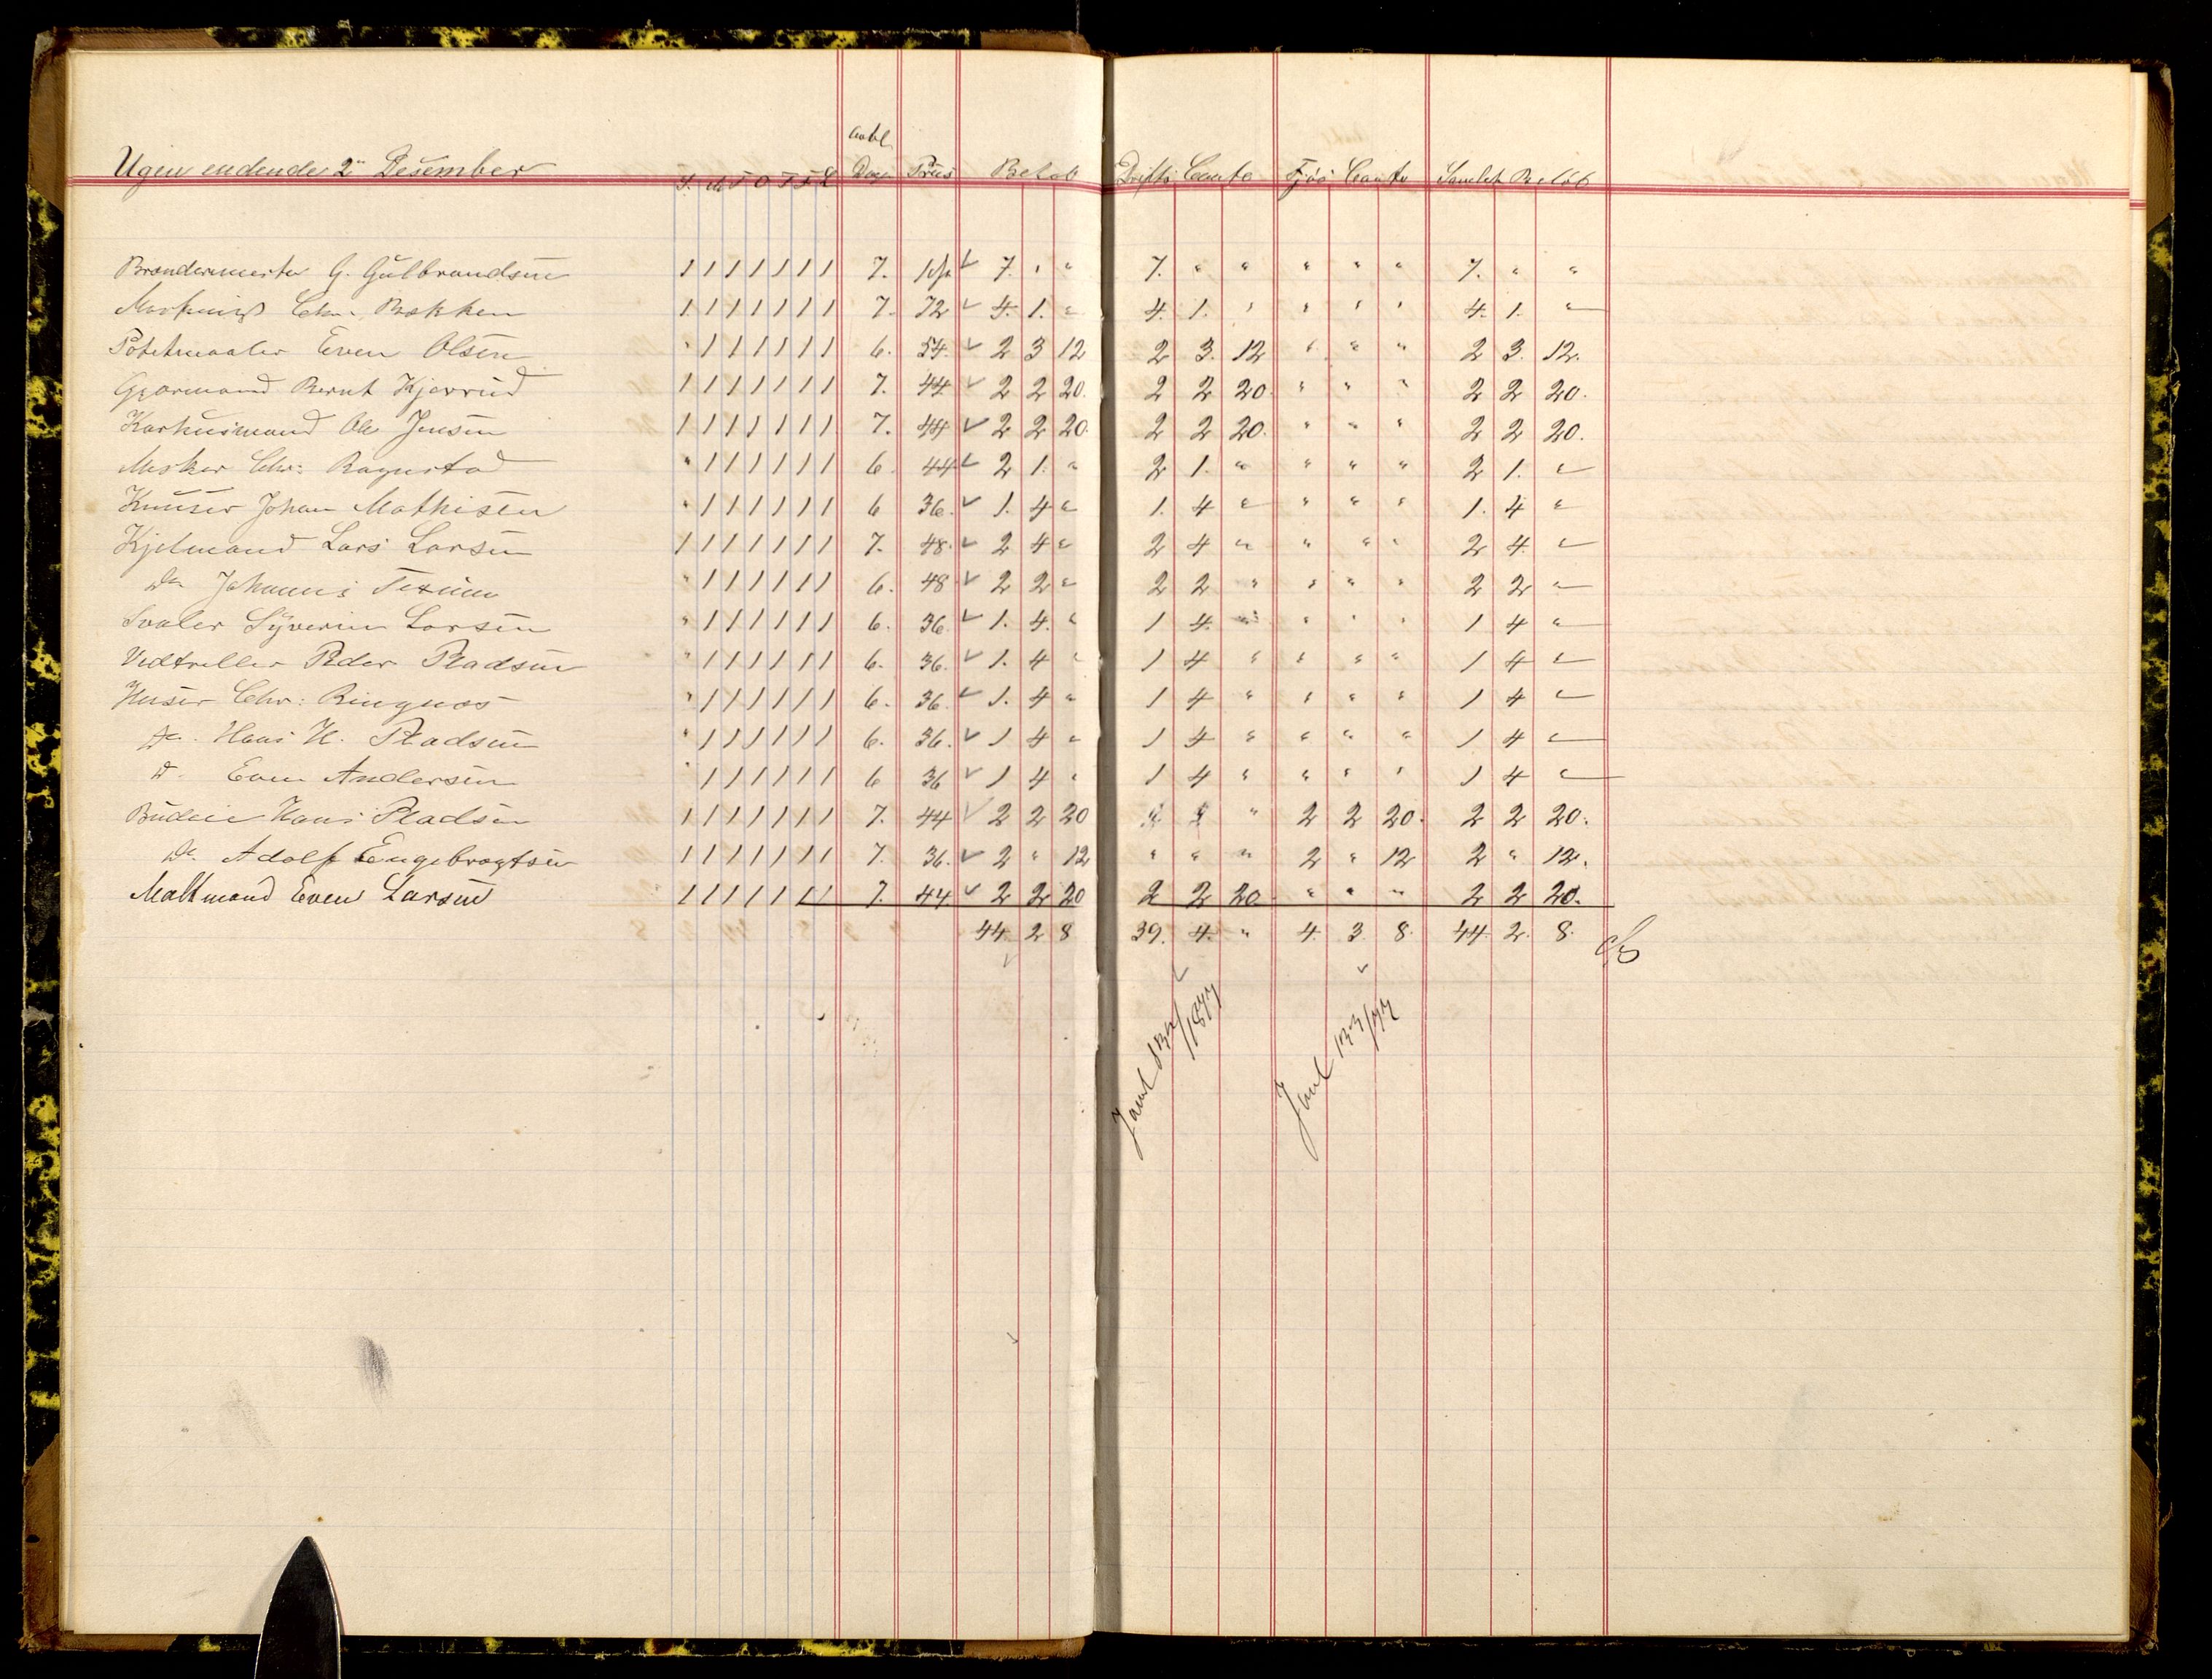 Antal
Ugen endende 2n Desember S. M T O T F L Dage Priis Beløb Drifts Conto Fjøs Conto Samlet Beløb
Brændermester G. Gulbrandsen 1 1 1 1 1 1 1 7. ✓ 7. " " 7. " " " " " 7. " "
Chr. Bakken 1 1 1 1 1 1 1 7. 72 ✓ 4. 1. " 4. 1. " " " " 4. 1. "
Potetmaaler Even Olsen " 1 1 1 1 1 1 6. 54. ✓ 2 3 12 2 3. 12 " " " 2 3. 12.
Gjærmand Bernt Kjærrud 1 1 1 1 1 1 1 7. 44. ✓ 2 2 20. 2 2 20. " " " 2 2 20.
Karhusmand Ole Jensen 1 1 1 1 1 1 1 7. 44 ✓ 2 2 20. 2 2 20. " " " 2 2 20.
Mesker Chr: Ragnstad " 1 1 1 1 1 1 6. 44 ✓ 2 1. " 2 1. " " " " 2 1. "
Knuser Johan Mathisen " 1 1 1 1 1 1 6 36. ✓ 1. 4 " 1. 4 " " " " 1. 4 "
Kjelmand Lars Larsen 1 1 1 1 1 1 1 7. 48. ✓ 2 4 " 2 4 " " " " 2 4. "
Do Johannes " 1 1 1 1 1 1 6. 48 ✓ 2 2 " 2 2 " " " " 2 2 "
Svaler Syverin Larsen " 1 1 1 1 1 1 6. 36. ✓ 1. 4. " 1 4. " " " " 1 4 "
Vedtriller Peder Pladsen " 1 1 1 1 1 1 6. 36. ✓ 1. 4 " 1 4 " " " " 1 4 "
Huser Chr: Ringnæs " 1 1 1 1 1 1 6. 36. ✓ 1. 4 " 1 4 " " " " 1 4 "
Do. Hans H. Pladsen " 1 1 1 1 1 1 6. 36. ✓ 1 4 " 1 4 " " " " 1 4 "
D. Even Andersen " 1 1 1 1 1 1 6 36 ✓ 1 4 " 1 4 " " " " 1 4 "
Budeie Hans Pladsen 1 1 1 1 1 1 1 7. 44 ✓ 2 2 20 " " " 2 2 20. 2 2 20.
Do. Adolf Engebragtsen 1 1 1 1 1 1 1 7. 36. ✓ 2 " 12 " " " 2 " 12 2 " 12.
Maltmand Even Larsen 1 1 1 1 1 1 1 7. 44 ✓ 2 2 20 2 2 20. " " " 2 2 20.
44. 2 8 39. 4. " 4. 3. 8. 44. 2. 8.
✓ ✓ ✓
/1877
Jrnl 133/77